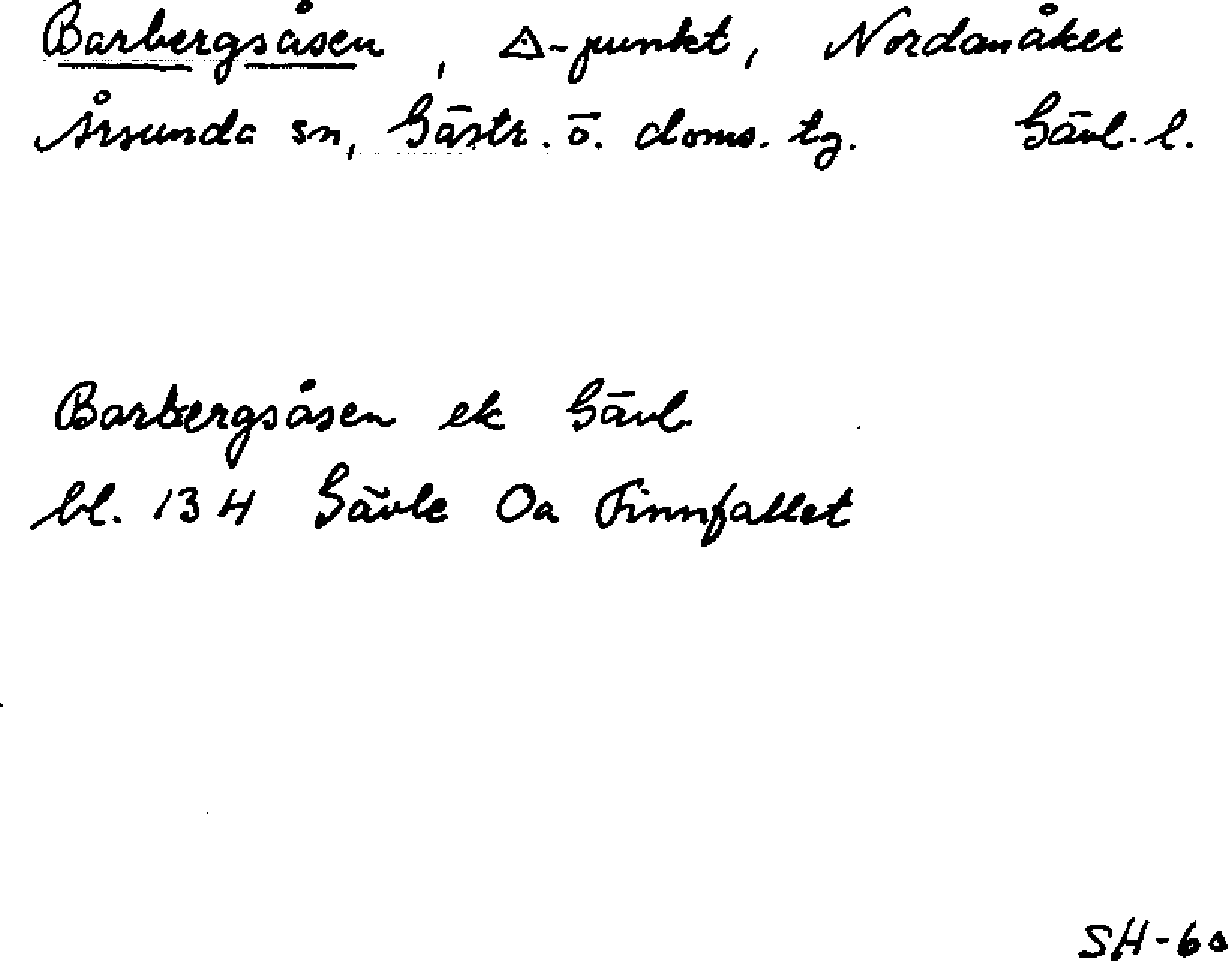 Barbergsåsen, △-punkt, Nordanåker
Årsunda sn, Gästr. ö. doms. tg. Gävl. l.
Barbergsåsen ek Gävl.
bl. 134 Gävle Oa Finnfallet
SH-60